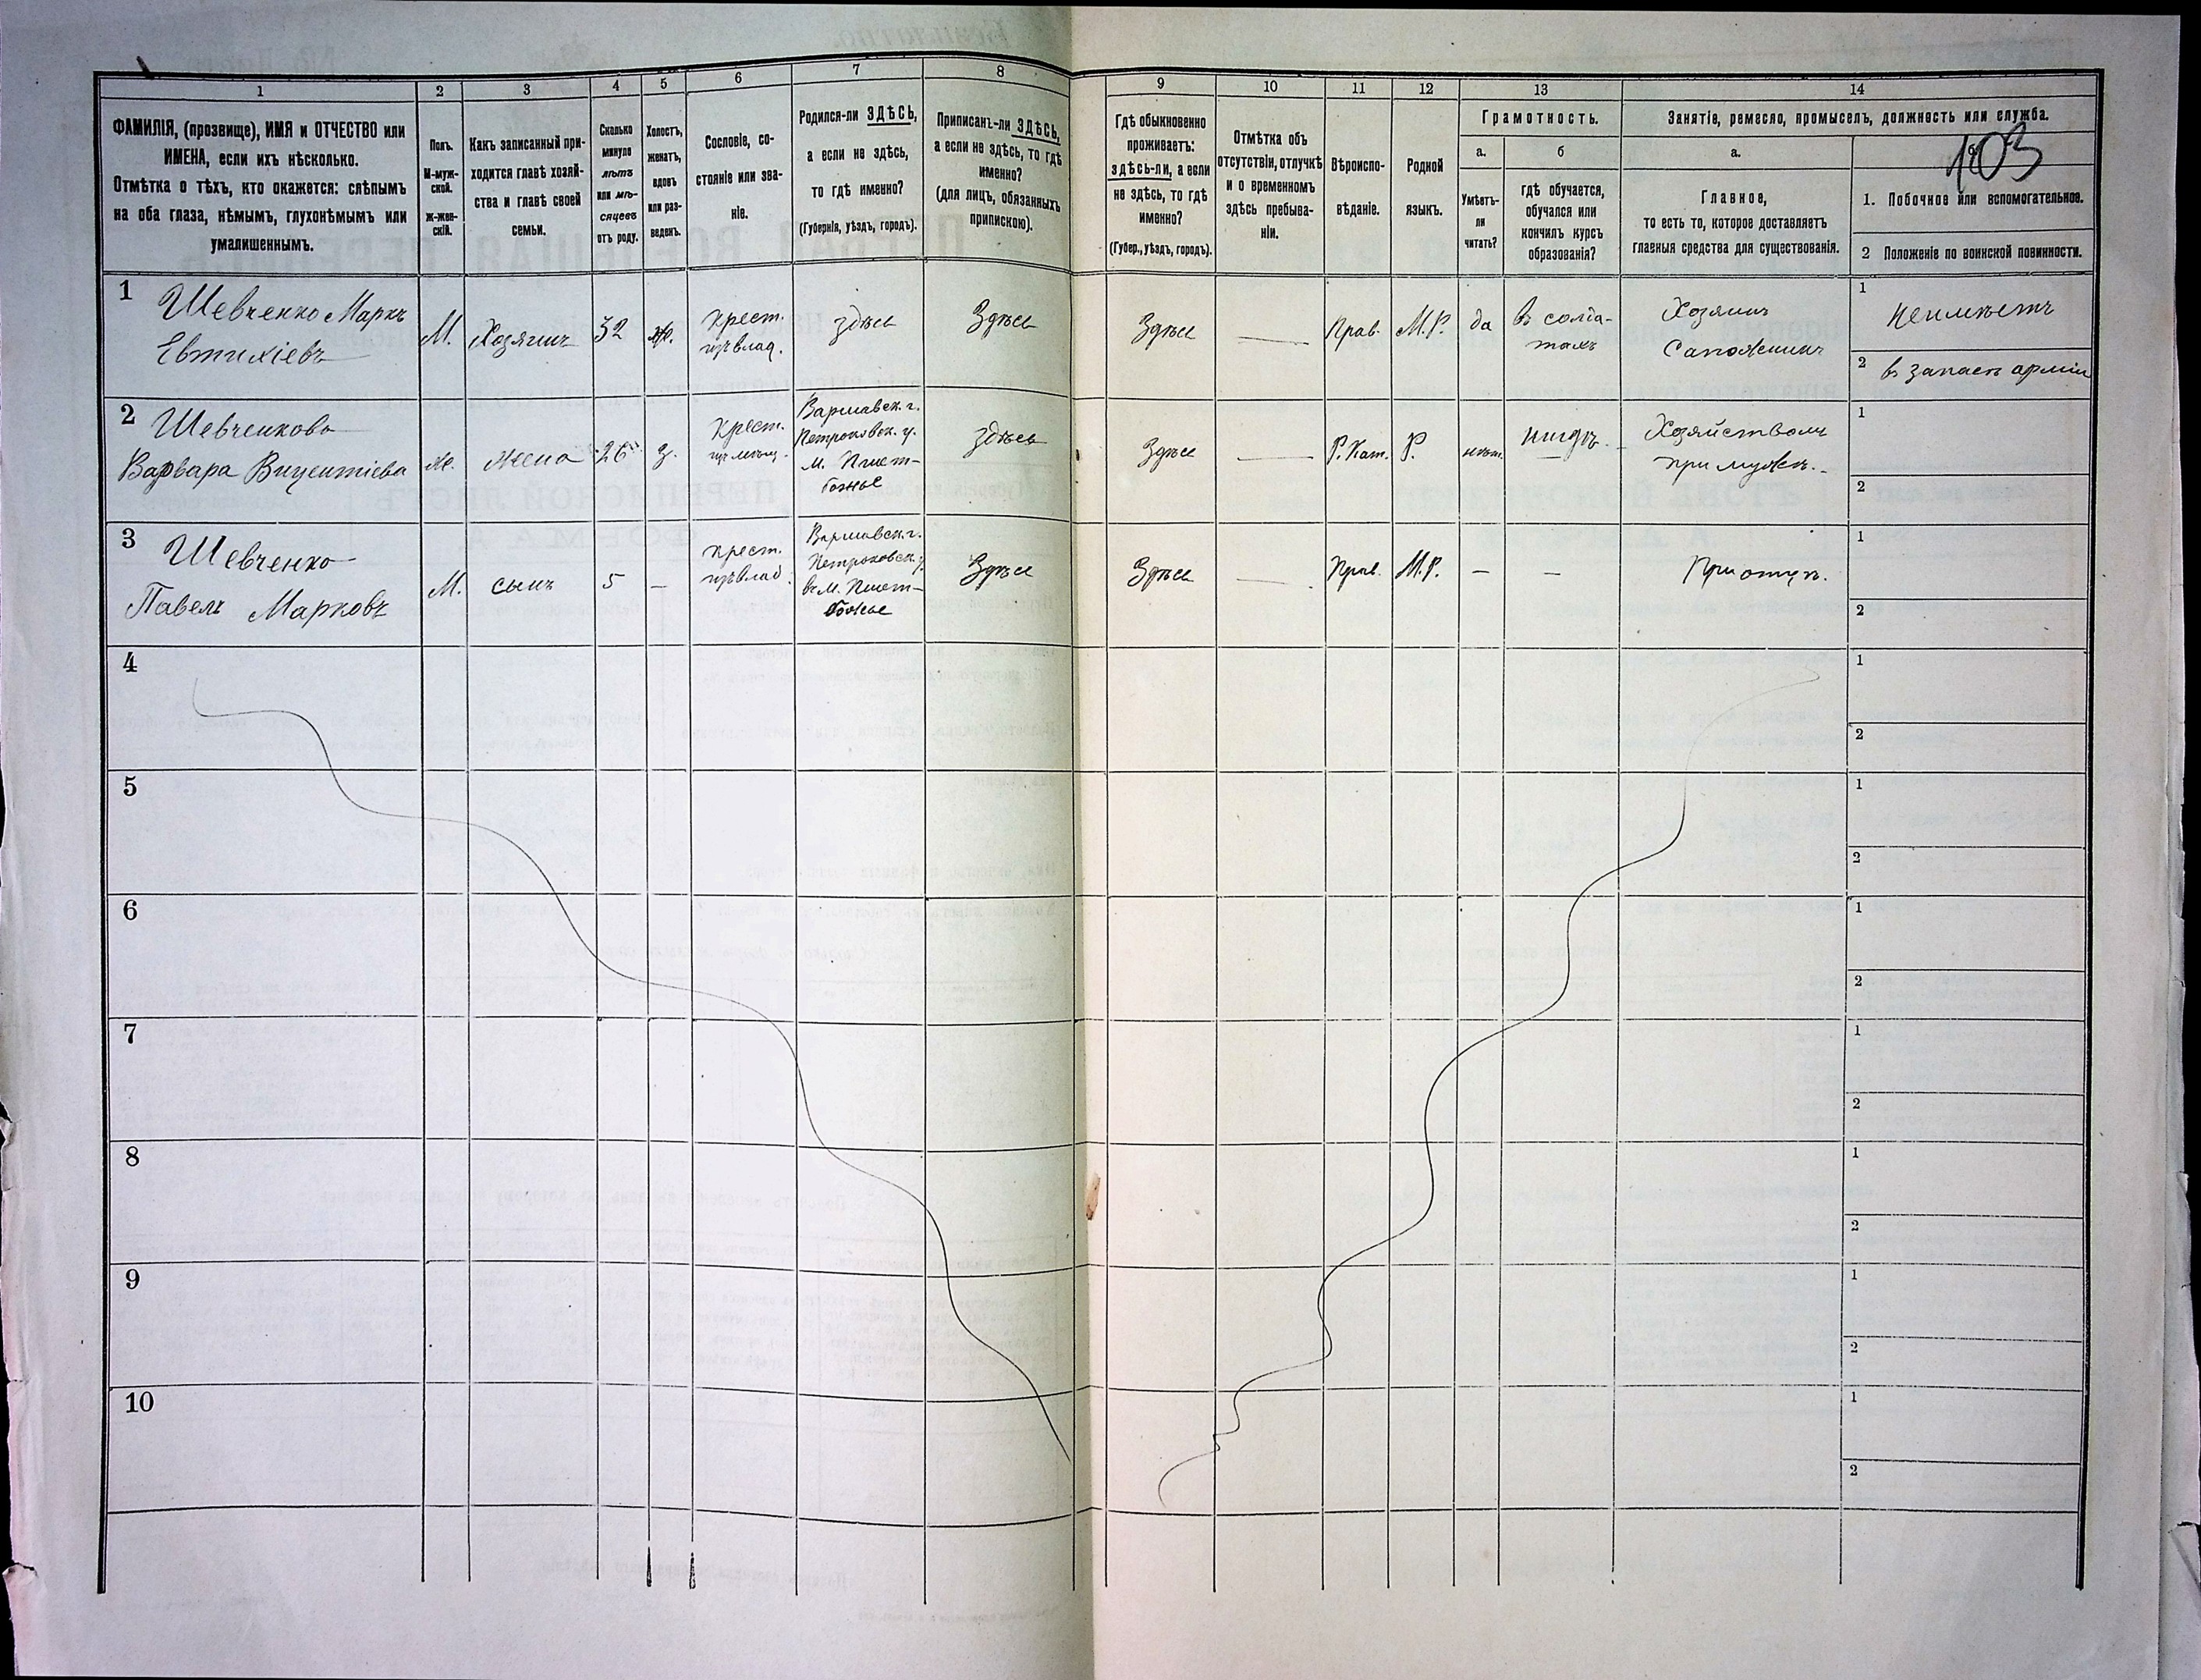 1 2 3 4 5 6 7 8 9 10 11 12 13 14
ФАМИЛІЯ, (прозвище), ИМЯ и ОТЧЕСТВО или
ИМЕНА, если ихъ нѣсколько.
Отмѣтка о тѣхъ, кто окажется: слѣпымъ
на оба глаза, нѣмымъ, глухонѣмымъ или
умалишеннымъ.
Полъ.
М-муж-
ской.
ж-жен-
скій.
Какъ записанный при-
ходится главѣ хозяй-
ства и главѣ своей
семьи.
Сколько
минуло
лѣтъ
или мѣ-
сяцевъ
отъ роду.
Холостъ,
женатъ,
вдовъ
или раз-
веденъ.
Сословіе, со-
стояніе или зва-
ніе.
Родился-ли ЗДѢСЬ,
а если не здѣсь,
то гдѣ именно?
(Губернія, уѣздъ, городъ).
Приписанъ-ли ЗДѢСЬ,
а если не здѣсь, то гдѣ
именно?
(для лицъ, обязанныхъ
припискою).
Гдѣ обыкновенно
проживаетъ:
здѣсь-ли, а если
не здѣсь, то гдѣ
именно?
(Губер., уѣздъ, городъ).
Отмѣтка объ
отсутствіи, отлучкѣ
и о временномъ
здѣсь пребыва-
ніи.
Вѣроиспо-
вѣданіе.
Родной
языкъ.
Грамотность.
а.
Умѣетъ-
ли
читать?
б
гдѣ обучается,
обучался или
кончилъ курсъ
образованія?
Занятіе, ремесло, промыселъ, должность или служба.
а.
Главное,
то есть то, которое доставляетъ
главныя средства для существованія.
103
1. Побочное или вспомогательное.
2 Положеніе по воинской повинности.
1 Шевченко Маркъ
Евтихіевъ
М. Хозяинъ 32 ж.
крест.
изъ влад.
здѣсь Здѣсь Здѣсь — Прав. М.Р. да
въ солда-
тахъ
Хозяинъ
Сапожникъ
1 Неимѣетъ
2 въ запасѣ арміи
2 Шевченкова
Варвара Викентіева
ж. жена 26 з.
крест.
Варшавск. г.
Петроковск. у.
м.
здѣсь Здѣсь — Р. Кат. Р. нѣт. нигдѣ
Хозяйствомъ
при мужѣ.
1
2
3 Шевченко
Павелъ Марковъ
М. сынъ 5 —
крест.
изъ влад.
Варшавск. г.
Петроковск. у.
въ м.
Здѣсь Здѣсь — Прав. М.Р. — —
При отцѣ.
1
2
4
1
2
5
1
2
6
1
2
7
1
2
8
1
2
9
1
2
10
1
2